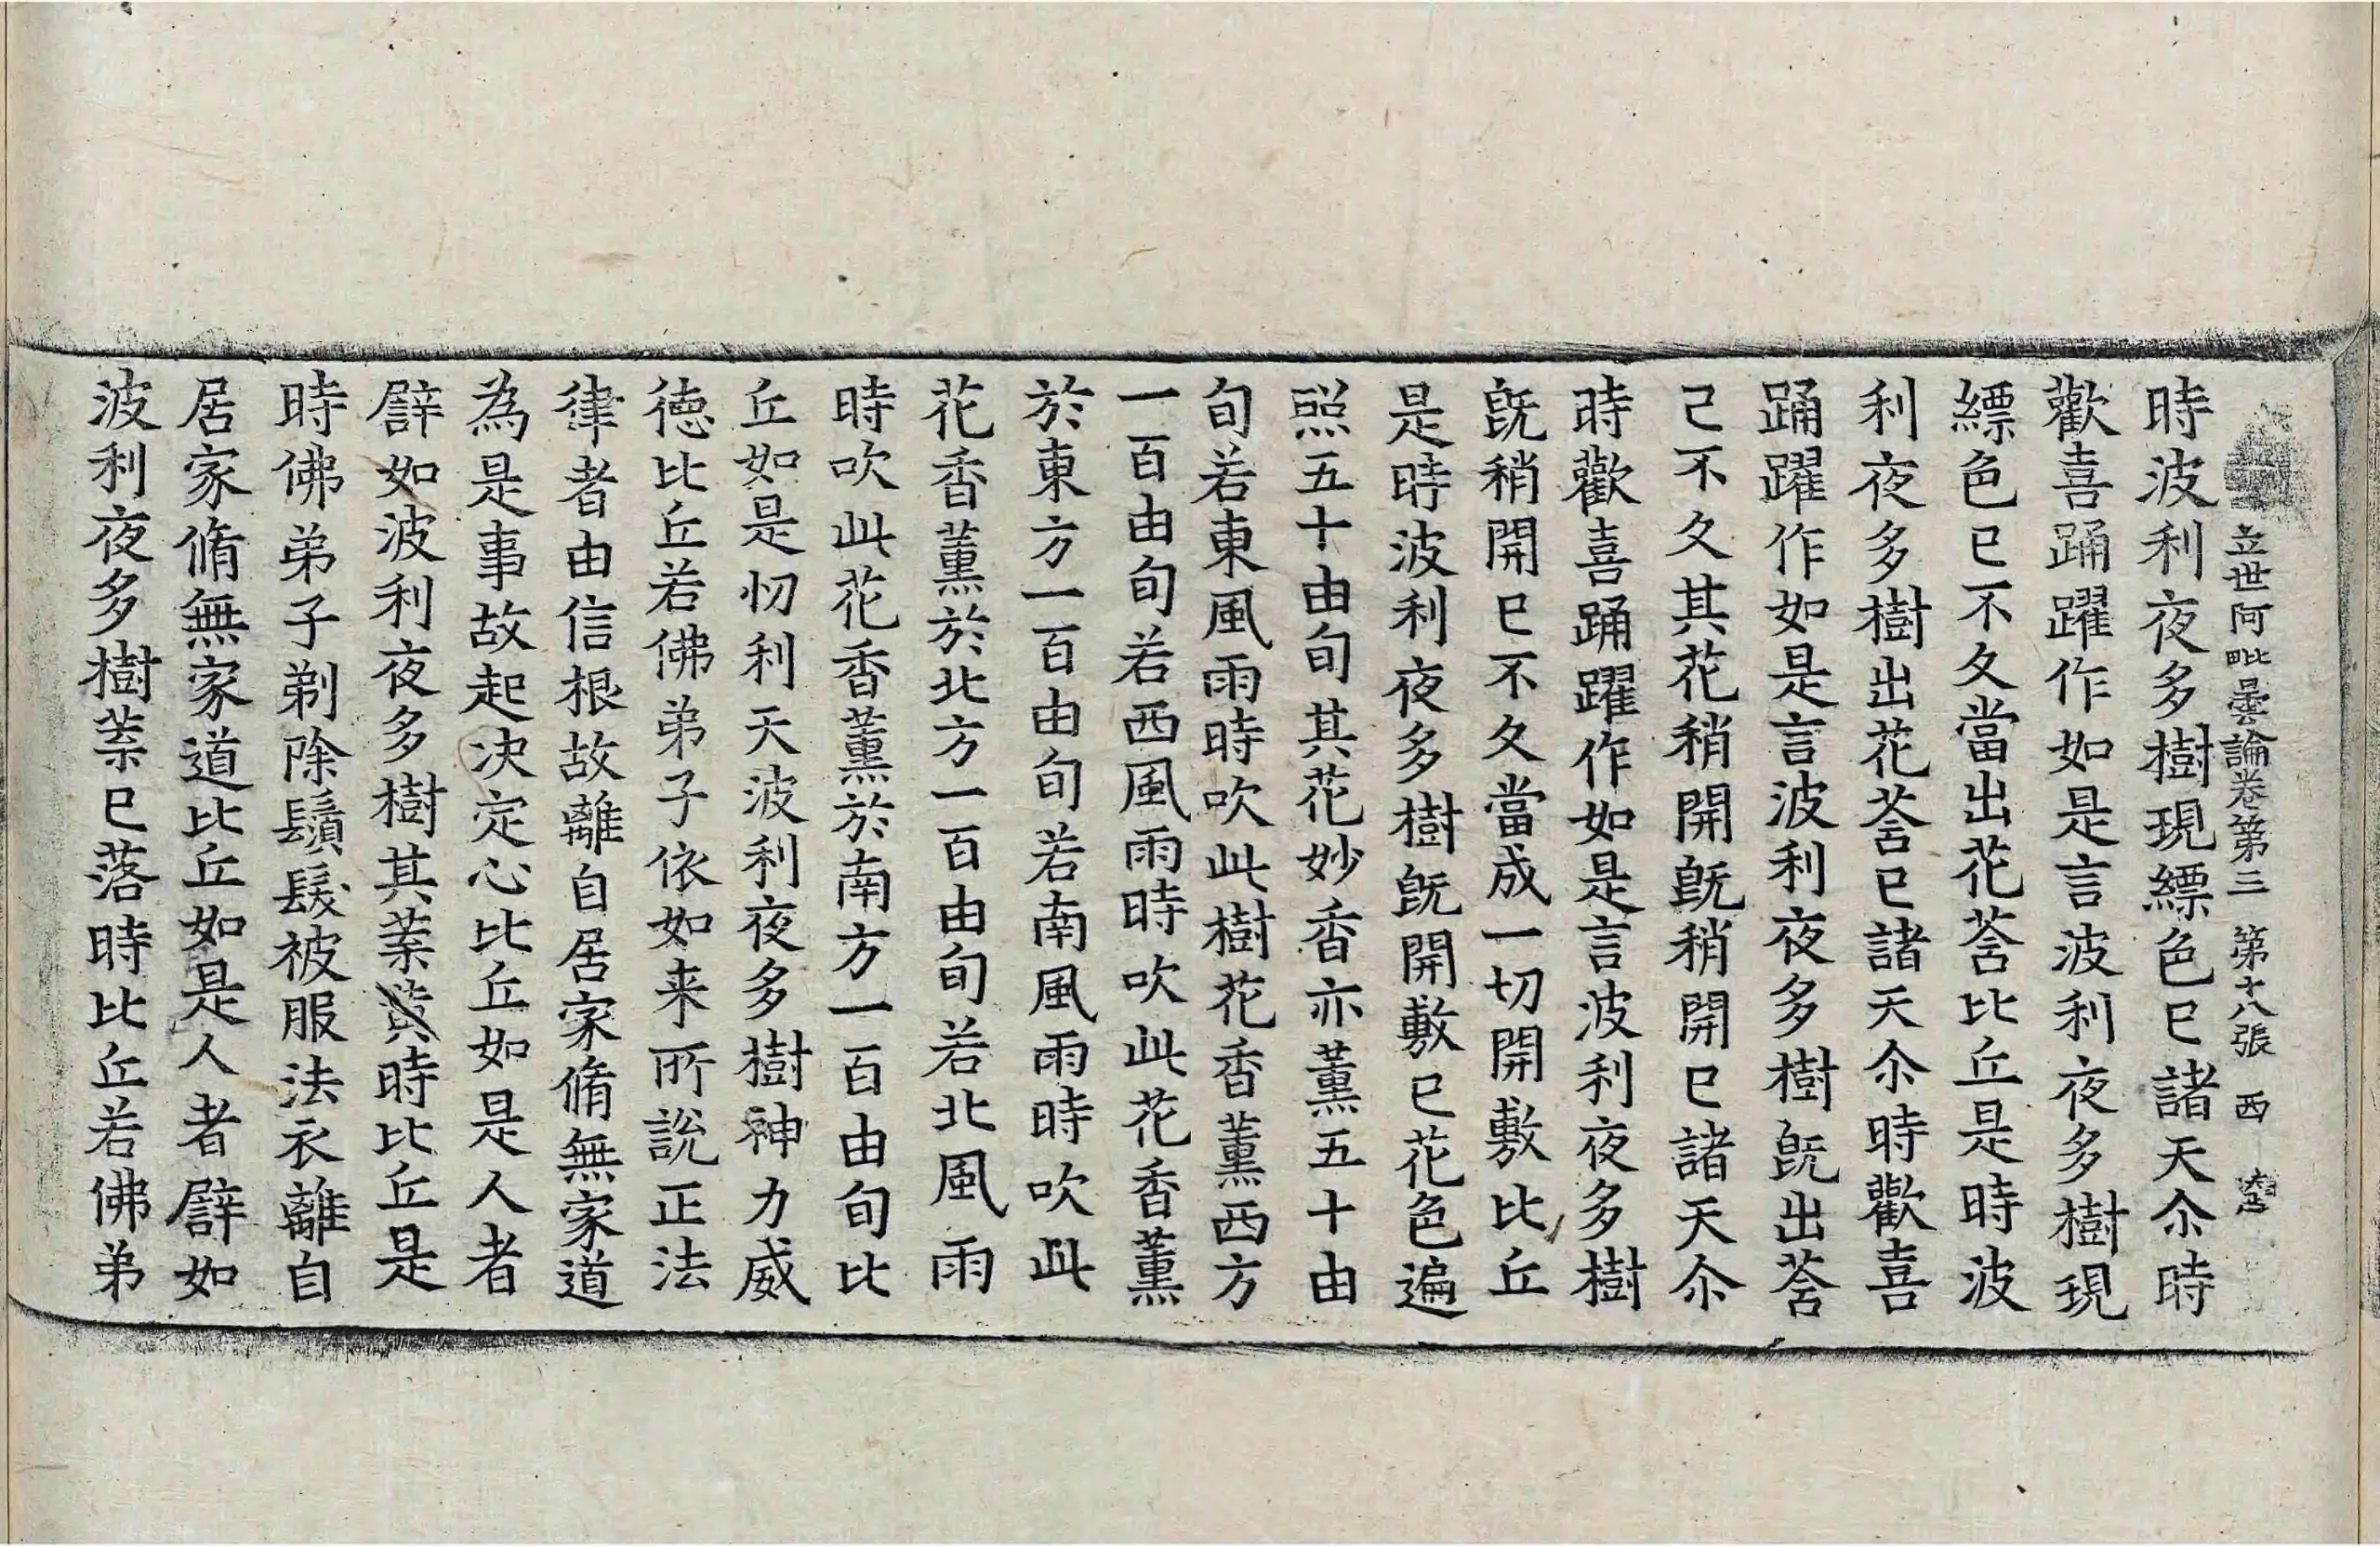 立世阿毗曇論卷第三 第十八張 西
時波利夜多樹現縹色已諸天尒時
歡喜踊躍作如是言波利夜多樹現
縹色已不久當出花荅比丘是時波
利夜多樹出花荅已諸天尒時歡喜
踊躍作如是言波利夜多樹旣出荅
己不久其花稍開旣稍開已諸天尒
時歡喜踊躍作如是言波利夜多樹
旣稍開已不久當成一切開敷比丘
是時波利夜多樹旣開敷已花色遍
照五十由旬其花妙香亦薰五十由
旬若東風雨時吹此樹花香薰西方
一百由旬若西風雨時吹此花香薰
於東方一百由旬若南風雨時吹此
花香薰於北方一百由旬若北風雨
時吹此花香薰於南方一百由旬比
丘如是忉利天波利夜多樹神力威
德比丘若佛弟子依如来所說正法
律者由信根故離自居家脩無家道
為是事故起决定心比丘如是人者
譬如波利夜多樹其葉黃時比丘是
時佛弟子剃除鬚髮被服法衣離自
居家脩無家道比丘如是人者譬如
波利夜多樹葉已落時比丘若佛弟